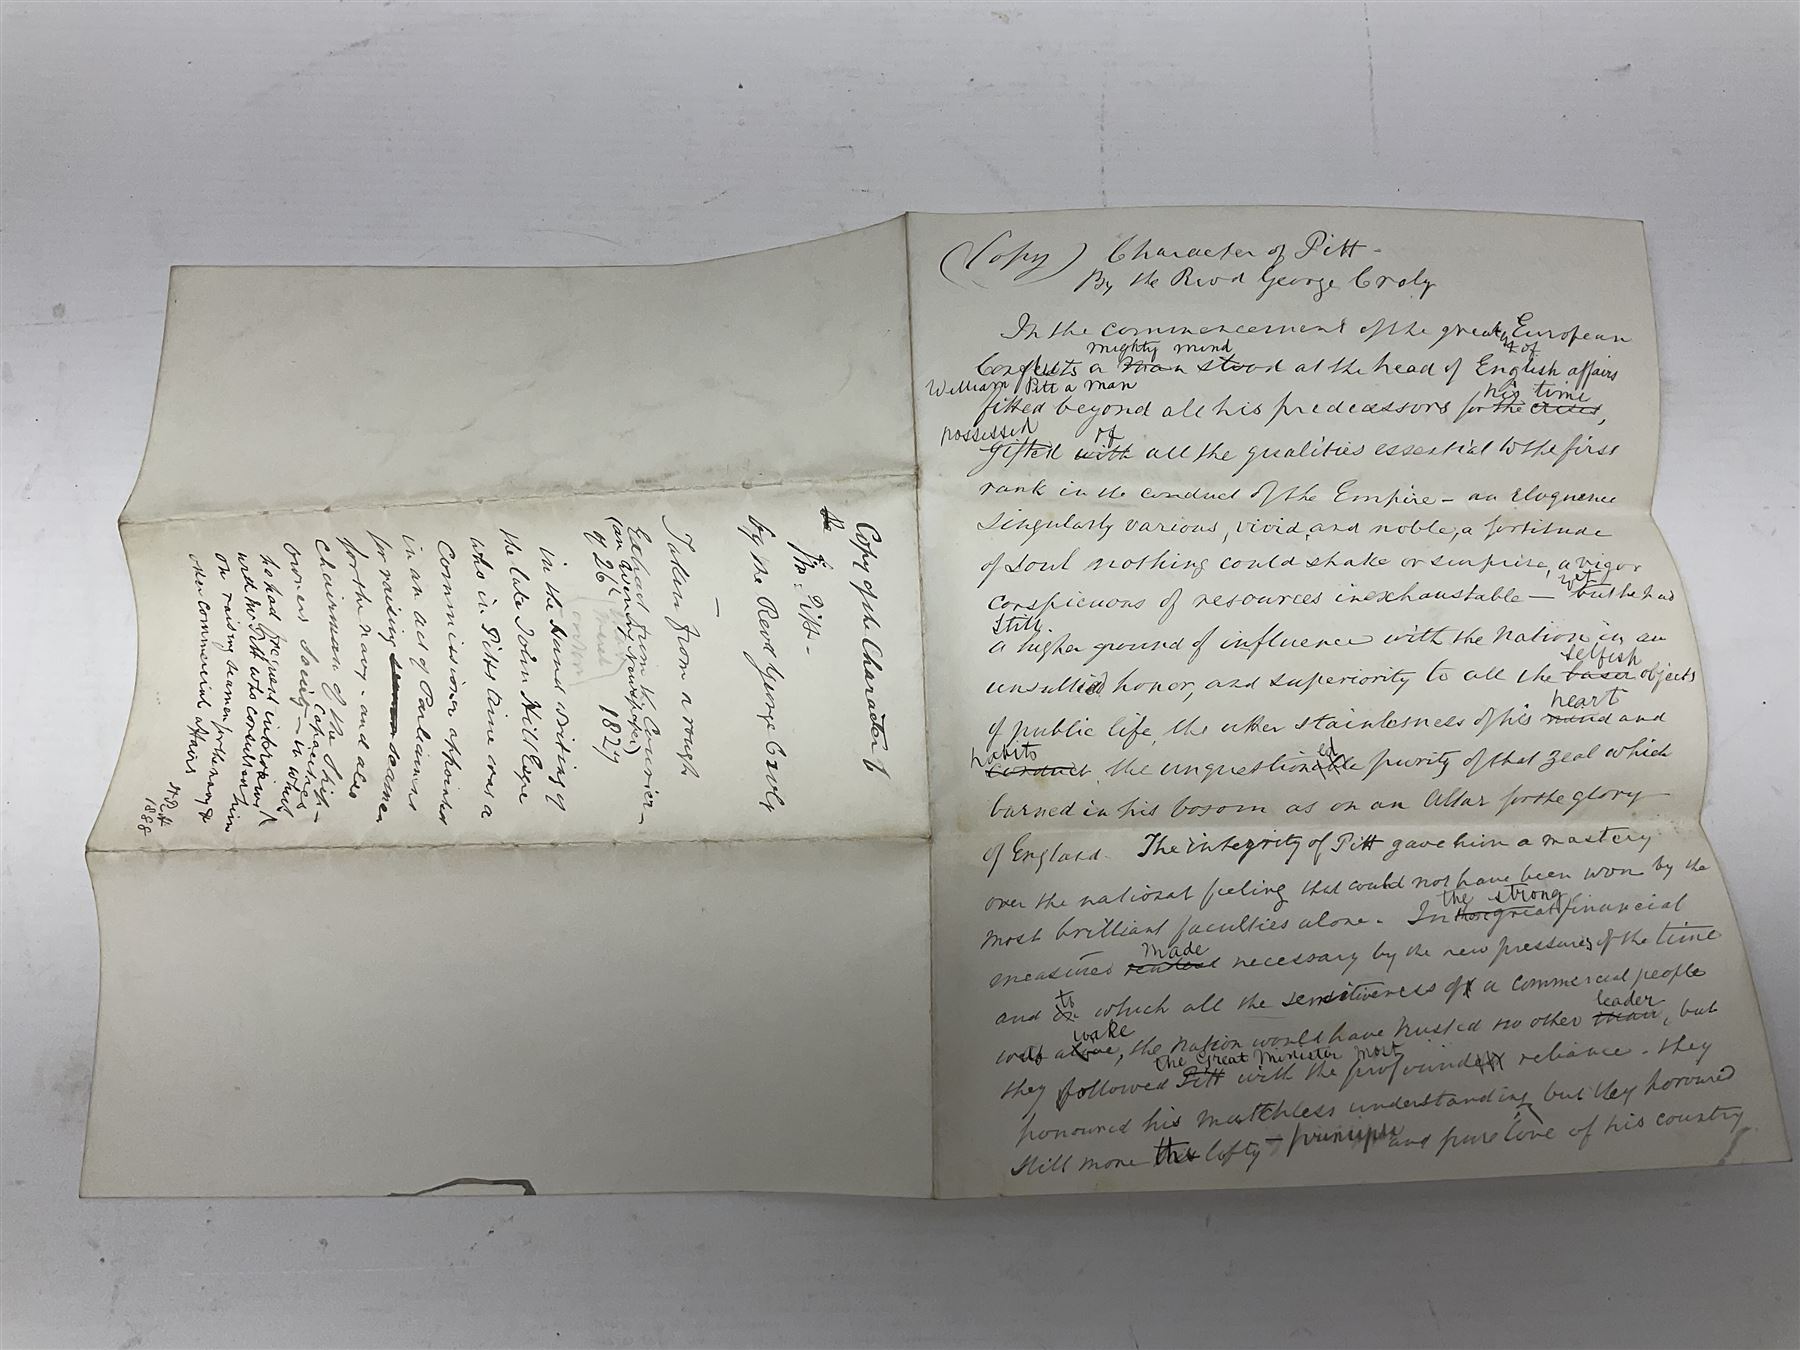 Copy of the Character of
Mr. Pitt -
by the Revd George Croly
Taken from a rough
Extract from the Courier -
(an evening newspaper)
of 26 1829
in the hand writing of
the late John Hill Esqre
who in Pitts time was a
Commissioner appointed
in an act of Parliament
for raising seamen seamen
for the navy - and also
Chairman of the Ship -
owners Society - in which
capacities
he had frequent interviews
with Mr Pitt who consulted him
on raising seamen for the navy &
other commercial affairs
1888
(Copy) Character of Pitt -
By the Revd George Croly
In the commencement of the great European
mighty mind
Conflicts a man stood at the head of English affairs
William Pitt a man his time
fitted beyond all his predecessors for the crisis,
possessed of
gifted with all the qualities essential to the first
rank in the conduct of the Empire - an eloquence
singularly various, vivid, and noble, a fortitude
of soul nothing could shake or surprise, a vigor
conspicuous of resources inexhaustable - but he had
yet
still
a higher ground of influence with the nation in an
selfish
unsullied honor, and superiority to all the baser objects
heart
of public life, the utter stainlesness of his mind and
habits ed
conduct, the unquestionable purity of that zeal which
burned in his bosom as on an Altar for the glory
of England. The integrity of Pitt gave him a mastery
over the national feeling that could not have been won by the
most brilliant faculties alone. In those great financial
the strong
made
measures rendered necessary by the new pressures of the time
to
and in which all the sensitiveness of a commercial people
wake leader
was alive, the nation would have trusted no other man, but
the Great Minister most
they followed Pitt with the profoundest reliance. They
honoured his matchless understanding but they honoured
still more the lofty - principle and pure love of his country